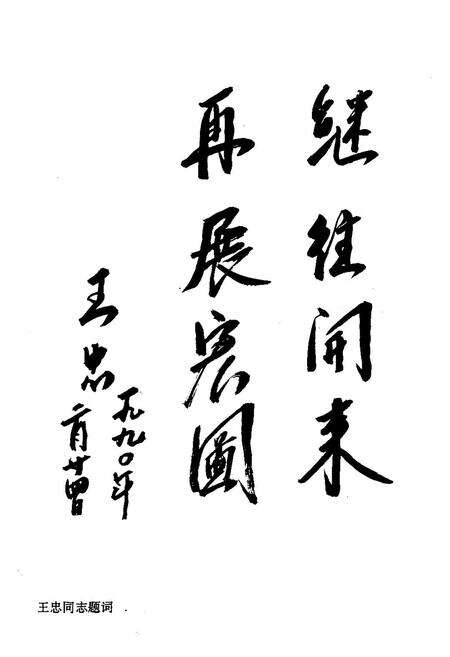 继往開来
再展宏圖
王忠
一九九〇年
二月廿四日
王忠同志题词